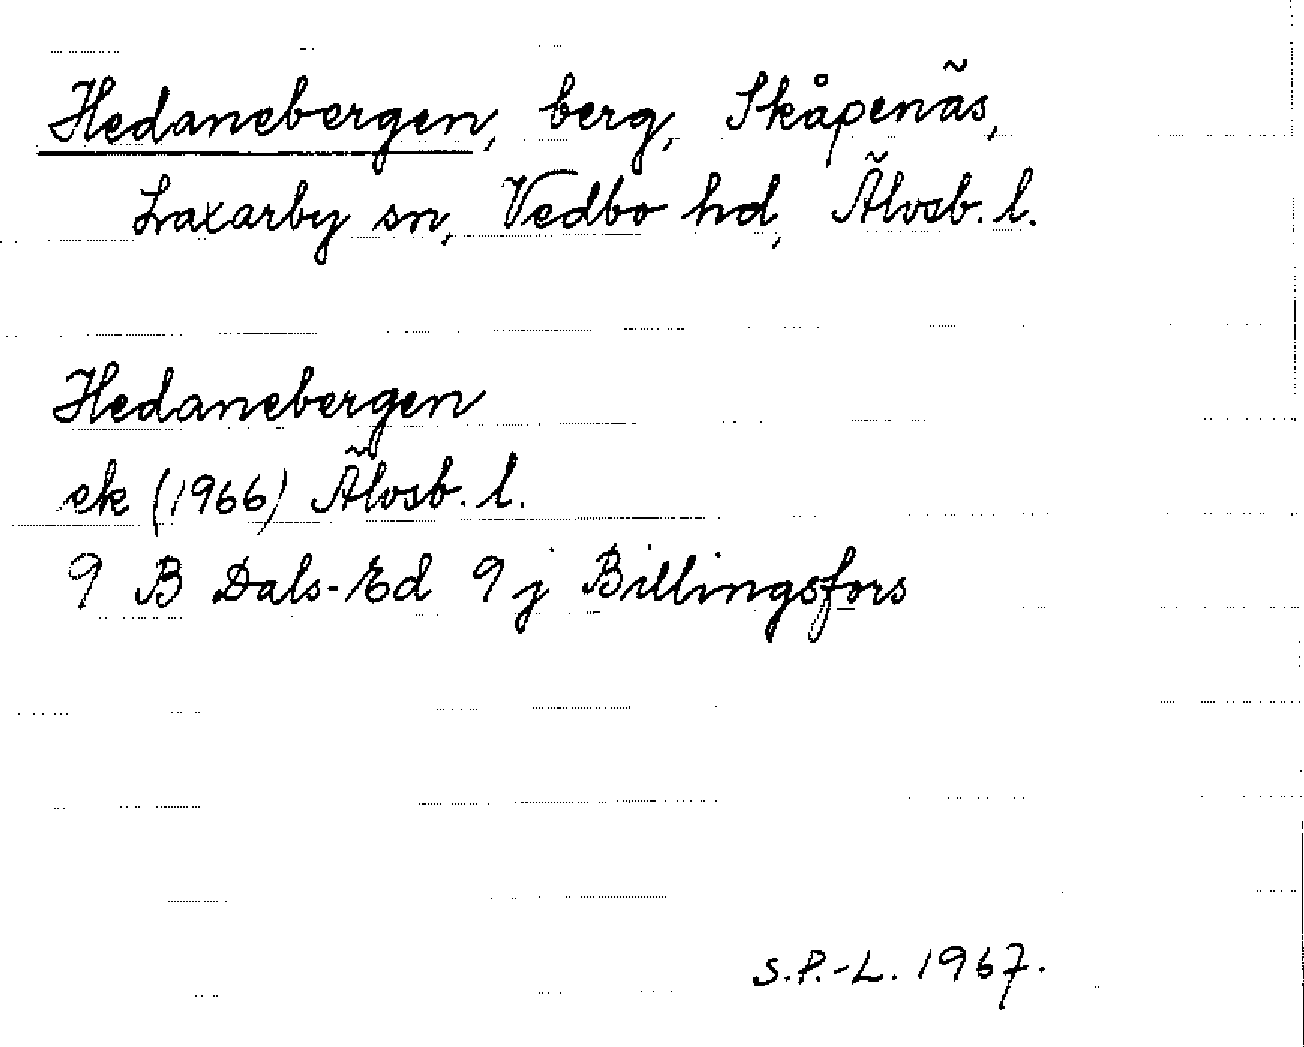 Hedanebergen, berg, Skåpenäs,
Laxarby sn, Vedbo hd, Älvsb. l.
Hedanebergen
ek (1966) Älvsb. l.
9 B Dals-Ed 9 j Billingsfors
S.P.-L. 1967.